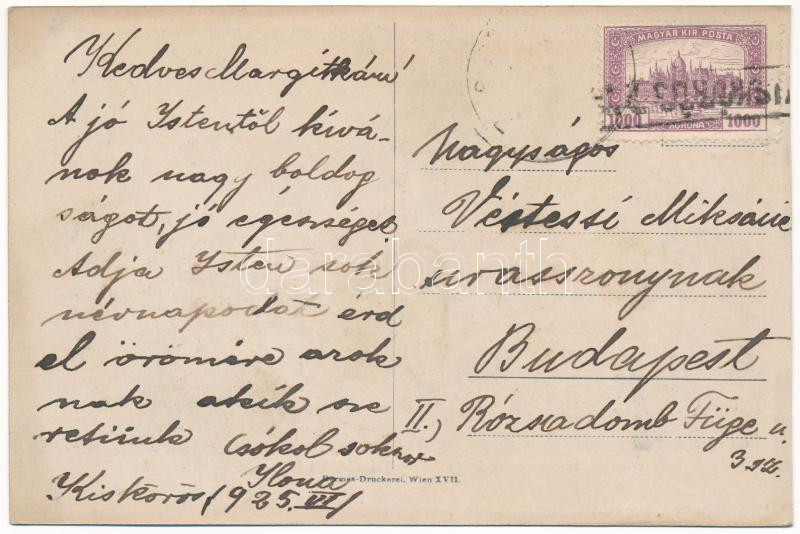 Kedves Margitkám!
A jó Istentől kívá-
nok nagy boldog
ságot, jó egésséget
Adja Isten sok
névnapodat érd
el örömére azok
nak akik sze
retünk Csókol sokszor
Ilona
Kiskőrös, 1925.
MAGYAR KIR. POSTA
1000 KORONA 1000
Nagyságos
Miksáné
urasszonynak
Budapest
II.) Rózsadomb Füge u.
3 sz.
Bermes-Druckerei, Wien XVII.
darabanth